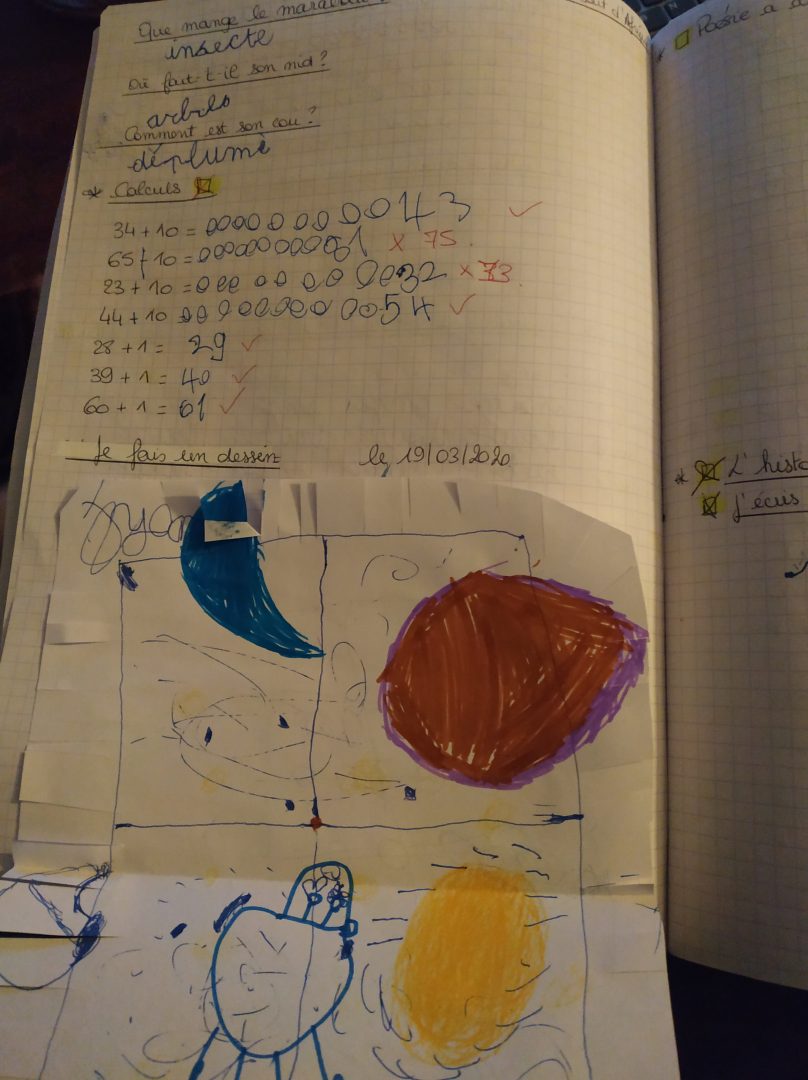 Que mange le marabout ?
insecte
Où fait-t-il son nid ?
Comment est son cou ?
déplumé
* Calculs
34 + 10 = 0000000000 43 ✓
65 + 10 = × 75.
23 + 10 = 32 × 33.
44 + 10 54 ✓
28 + 1 = 29 ✓
39 + 1 = 40 ✓
60 + 1 = 61 ✓
Je fais un dessin
le 19/03/2020
Poésie a
* L'histo
j'écris